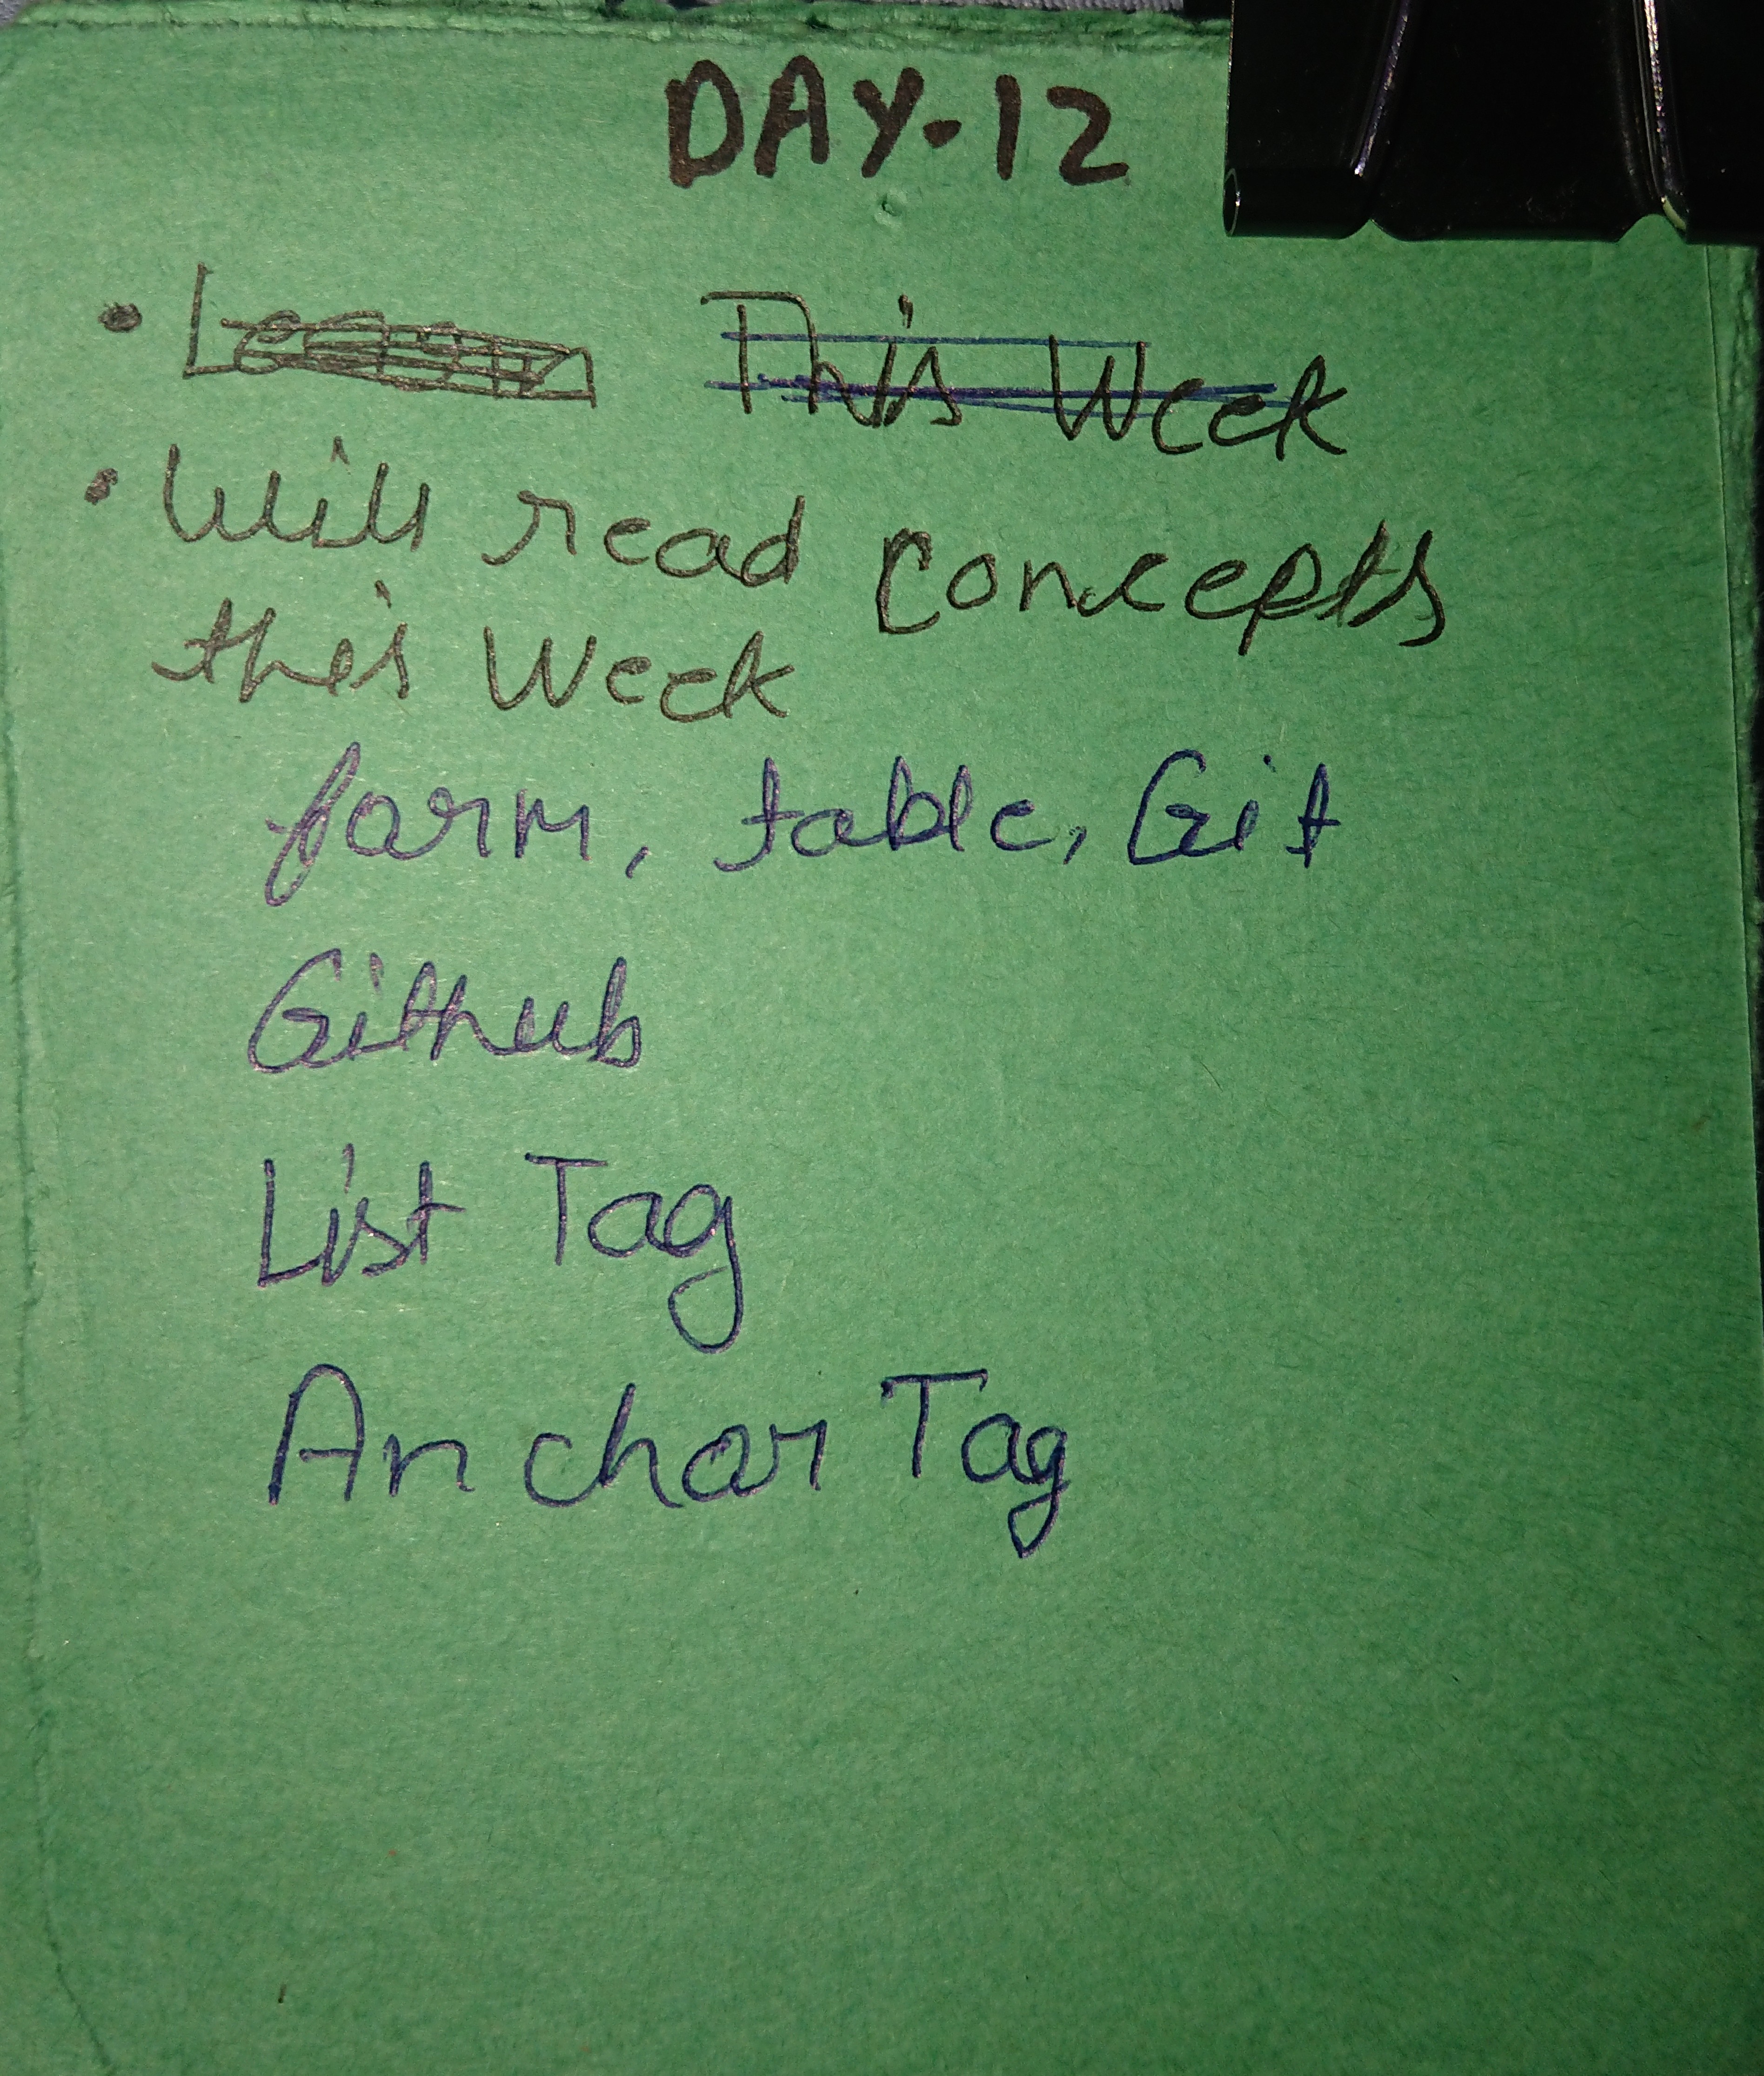 DAY-12
This Week
• Will read concepts
this Week
form, table, Git
Github
List Tag
Anchor Tag